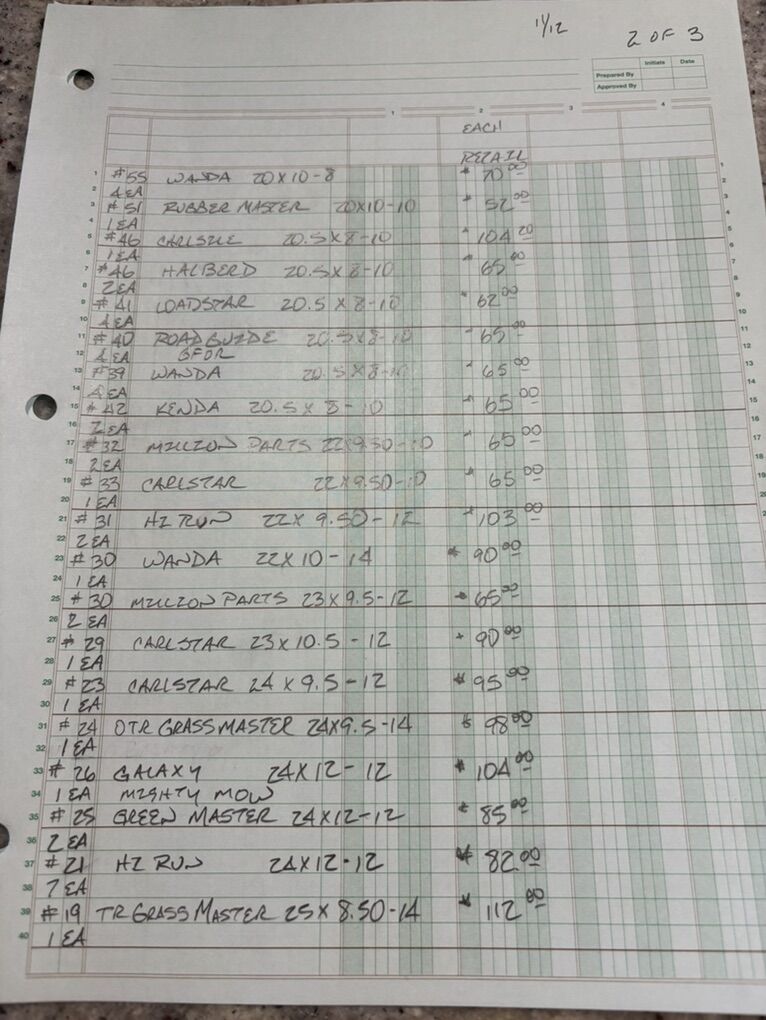 11/12
2 OF 3
Initials Date
Prepared By
Approved By
1 2 3 4
EACH
RETAIL
1 #55 WANDA 20X10-8 * 70 00 1
2 4 EA 2
3 #51 RUBBER MASTER 20X10-10 * 52 00 3
4 1 EA 4
5 #46 CARLSLE 20.5X8-10 * 104 20 5
6 1 EA 6
7 #46 HALBERD 20.5X8-10 * 65 00 7
8 2 EA 8
9 #41 LOADSTAR 20.5X8-10 * 62 00 9
10 4 EA 10
11 #40 ROADGUIDE 20.5X8-10 * 65 00 11
12 4 EA GFDR 12
13 #39 WANDA 20.5X8-10 * 65 00 13
14 4 EA 14
15 #42 KENDA 20.5X8-10 * 65 00 15
16 2 EA 16
17 #32 MILLION PARTS 22X9.50-10 * 65 00 17
18 2 EA 18
19 #33 CARLSTAR 22X9.50-10 * 65 00 19
20 1 EA 20
21 #31 HI RUN 22X9.50-12 * 103 00
22 2 EA
23 #30 WANDA 22X10-14 * 90 00
24 1 EA
25 #30 MILLION PARTS 23X9.5-12 * 65 00
26 2 EA
27 #29 CARLSTAR 23X10.5-12 * 90 00
28 1 EA
29 #23 CARLSTAR 24X9.5-12 * 95 00
30 1 EA
31 #24 OTR GRASSMASTER 24X9.5-14 * 98 00
32 1 EA
33 #26 GALAXY 24X12-12 * 104 00
34 1 EA MIGHTY MOW
35 #25 GREEN MASTER 24X12-12 * 85 00
36 2 EA
37 #21 HI RUN 24X12-12 * 82 00
38 7 EA
39 #19 TR GRASSMASTER 25X8.50-14 * 112 00
40 1 EA